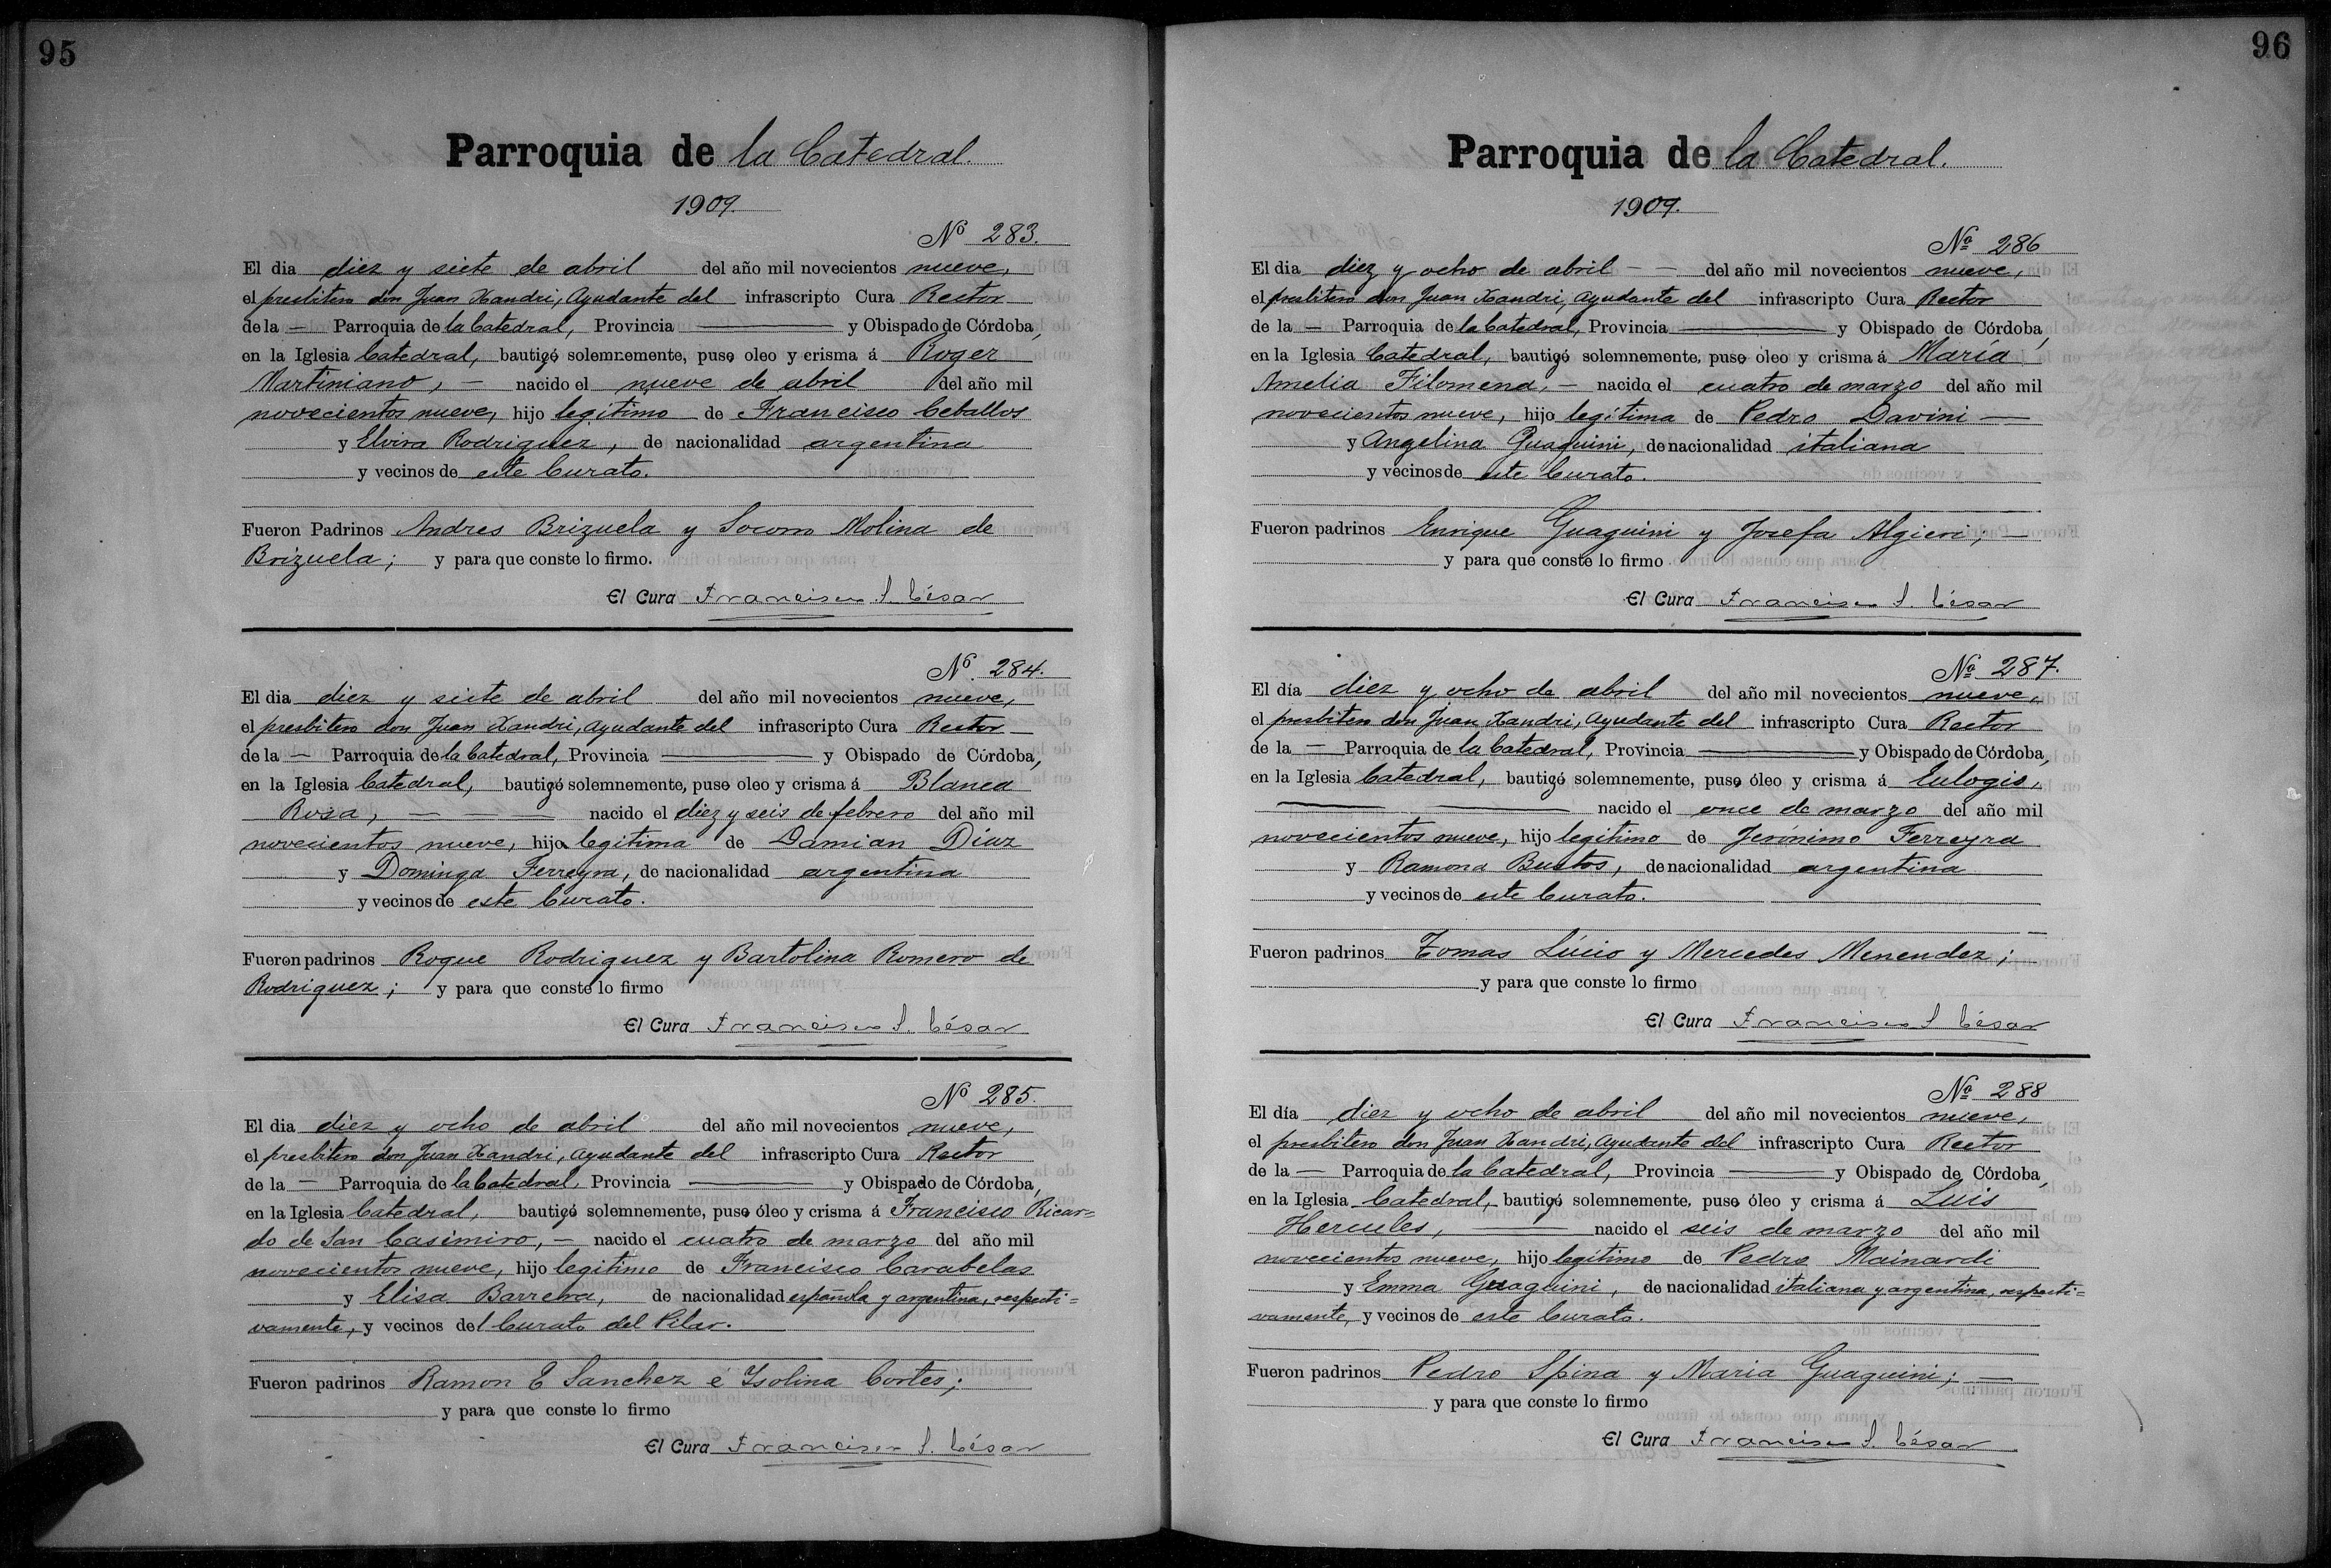 95
Parroquia de la Catedral.
1909.
Nº 283.
El dia diez y siete de abril del año mil novecientos nueve,
el presbitero don Juan Xandri, Ayudante del infrascripto Cura Rector
de la — Parroquia de la Catedral, Provincia — y Obispado de Córdoba,
en la Iglesia Catedral, bautizó solemnemente, puso oleo y crisma á Roger
Martiniano, — nacido el nueve de abril del año mil
novecientos nueve, hijo legítimo de Francisco Ceballos
y Elvira Rodriguez, de nacionalidad argentina
y vecinos de este Curato.
Fueron Padrinos Andres Brizuela y Socorro Molina de
Brizuela; y para que conste lo firmo.
El Cura Francisco S. César
Nº 284.
El dia diez y siete de abril del año mil novecientos nueve,
el presbitero don Juan Xandri, Ayudante del infrascripto Cura Rector —
de la — Parroquia de la Catedral, Provincia — y Obispado de Córdoba,
en la Iglesia Catedral, bautizó solemnemente, puso oleo y crisma á Blanca
Rosa, — — — nacido el diez y seis de febrero del año mil
novecientos nueve, hija legítima de Damian Díaz
y Dominga Ferreyra, de nacionalidad argentina
y vecinos de este Curato.
Fueron padrinos Roque Rodriguez y Bartolina Romero de
Rodriguez; y para que conste lo firmo
El Cura Francisco S. César
Nº 285.
El dia diez y ocho de abril del año mil novecientos nueve,
el presbitero don Juan Xandri, Ayudante del infrascripto Cura Rector
de la — Parroquia de la Catedral, Provincia — y Obispado de Córdoba,
en la Iglesia Catedral, bautizó solemnemente, puso óleo y crisma á Francisco Ricar=
do de San Casimiro, — nacido el cuatro de marzo del año mil
novecientos nueve, hijo legítimo de Francisco Carabelas
y Elisa Barrera, de nacionalidad española y argentina, respecti=
vamente, y vecinos del Curato del Pilar.
Fueron padrinos Ramon E Sanchez é Ysolina Cortes;
y para que conste lo firmo
El Cura Francisco S. César
96
Parroquia de la Catedral.
1909.
Nº 286
El dia diez y ocho de abril — — del año mil novecientos nueve,
el presbitero don Juan Xandri, Ayudante del infrascripto Cura Rector
de la — Parroquia de la Catedral, Provincia — y Obispado de Córdoba,
en la Iglesia Catedral, bautizó solemnemente, puso óleo y crisma á María
Amelia Filomena, — nacida el cuatro de marzo del año mil
novecientos nueve, hijo legítima de Pedro Davini —
y Angelina Guaquini, de nacionalidad italiana
y vecinos de este Curato.
Fueron padrinos Enrique Guaquini y Josefa Algieri; —
y para que conste lo firmo
El Cura Francisco S. César
Nº 287.
El día diez y ocho de abril del año mil novecientos nueve,
el presbitero don Juan Xandri, Ayudante del infrascripto Cura Rector
de la — Parroquia de la Catedral, Provincia — y Obispado de Córdoba,
en la Iglesia Catedral, bautizó solemnemente, puso óleo y crisma á Eulogio,
— — nacido el once de marzo del año mil
novecientos nueve, hijo legítimo de Jerónimo Ferreyra
y Ramona Bustos, de nacionalidad argentina
y vecinos de este Curato.
Fueron padrinos Tomas Lúcio y Mercedes Menendez; —
y para que conste lo firmo
El Cura Francisco S César
Nº 288
El día diez y ocho de abril del año mil novecientos nueve,
el presbitero don Juan Xandri, Ayudante del infrascripto Cura Rector
de la — Parroquia de la Catedral, Provincia — y Obispado de Córdoba,
en la Iglesia Catedral, bautizó solemnemente, puso óleo y crisma á Luis
Hercules, — nacido el seis de marzo del año mil
novecientos nueve, hijo legítimo de Pedro Mainardi
y Emma Guaquini, de nacionalidad italiana y argentina, respecti=
vamente, y vecinos de este Curato.
Fueron padrinos Pedro Spina y Maria Guaquini; —
y para que conste lo firmo
El Cura Francisco S. César